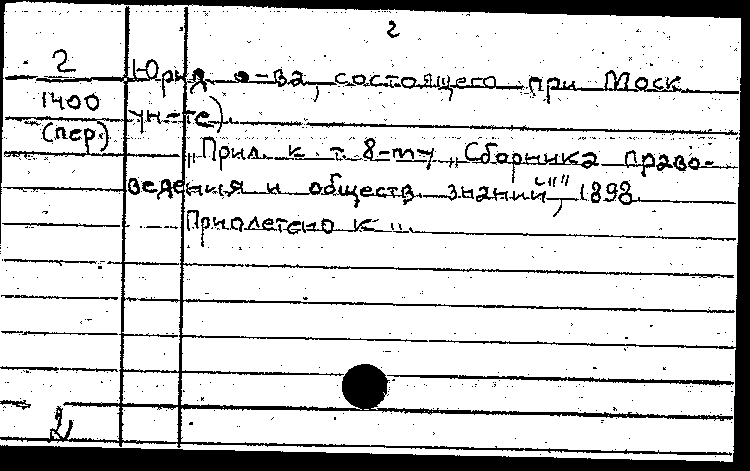 2
2
1400
(пер.)
Юрид. о-ва, состоящего при Моск
ун-те).
„Прил. к т. 8-му „Сборника право-
ведения и обществ. знаний"", 1898
Приплетено к ...
2